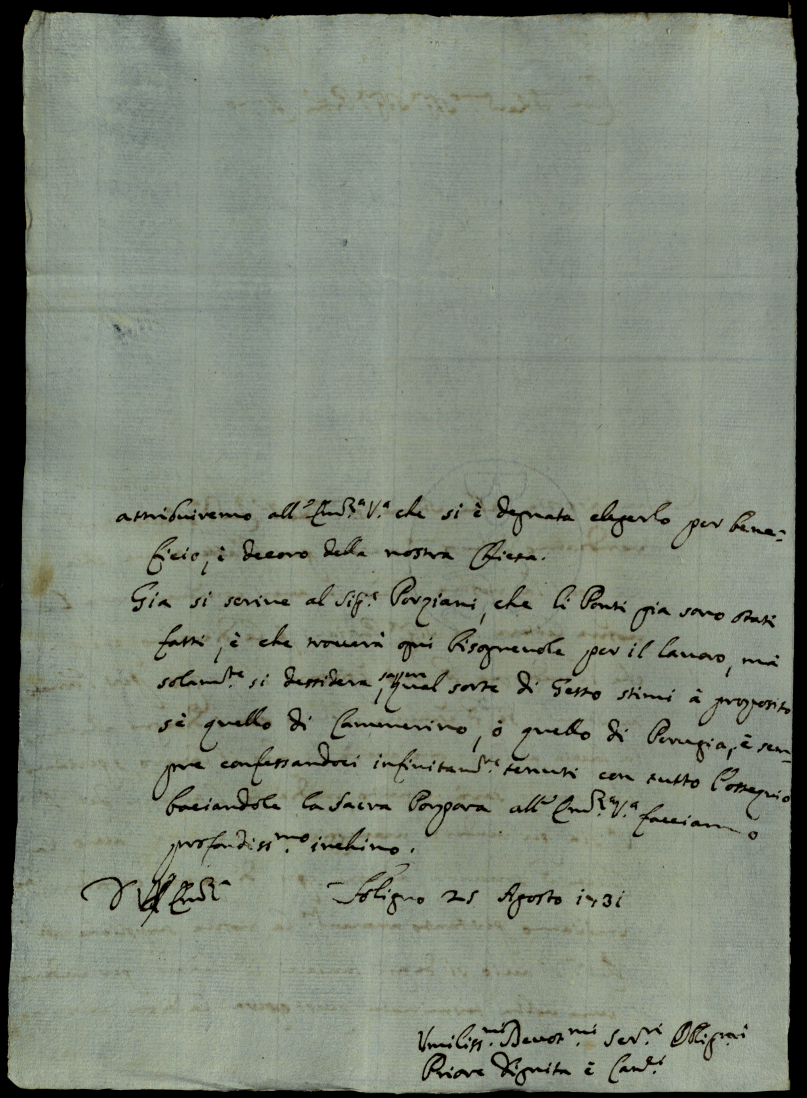 attribuiremo all'Em.za V.a che si è degnata elegerlo per bene=
ficio, è decoro della nostra Chiesa.
Gia si scrive al Sig.r Porziani, che li Ponti gia sono stati
fatti, è che troverà qui bisognevole per il lavoro, mà
solam.te si dessidera, sapere qual sorte di Gesso stimi à proposito
sè quello di Camerino, ò quello di Perugia, è sem-
pre confessandoci infinitam.te tenuti con tutto l'ossequio
baciandole la Sacra Porpora all'Em.za V.a facciamo
profondiss.mo inchino.
D V Em.za Foligno 25 Agosto 1731
Umiliss.mi Devot.mi Ser.ri Oblig.mi
Priore Dignita è Can.ci